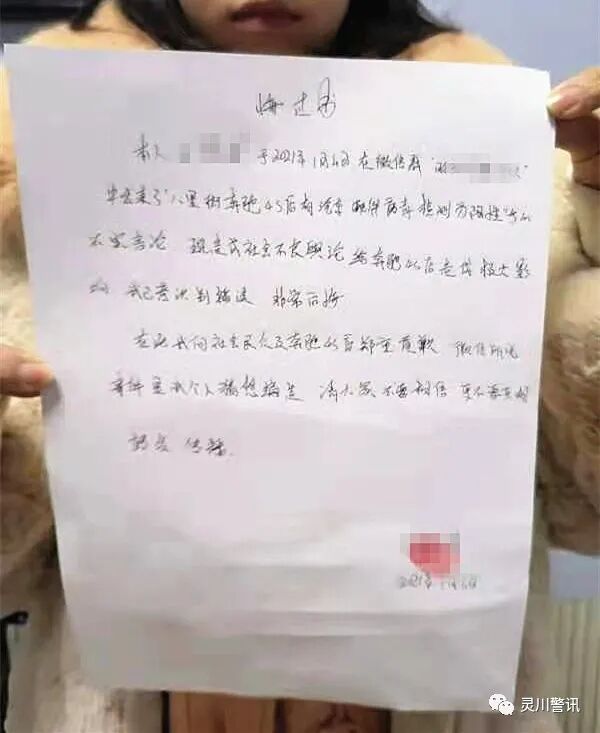 悔过书
本人 于2021年1月4日在微信群"
中发表了"八里街奔驰4S店有汽车配件病毒检测为阳性"
不实言论 现造成社会不良舆论 给奔驰4S店造成极大影
响 我已意识到错误 非常后悔
在此我向社会民众及奔驰4S店郑重道歉 微信所说
事件是我个人猜想编造 请大家不要相信 更不要
转发 传播.
2021年1月
灵川警讯